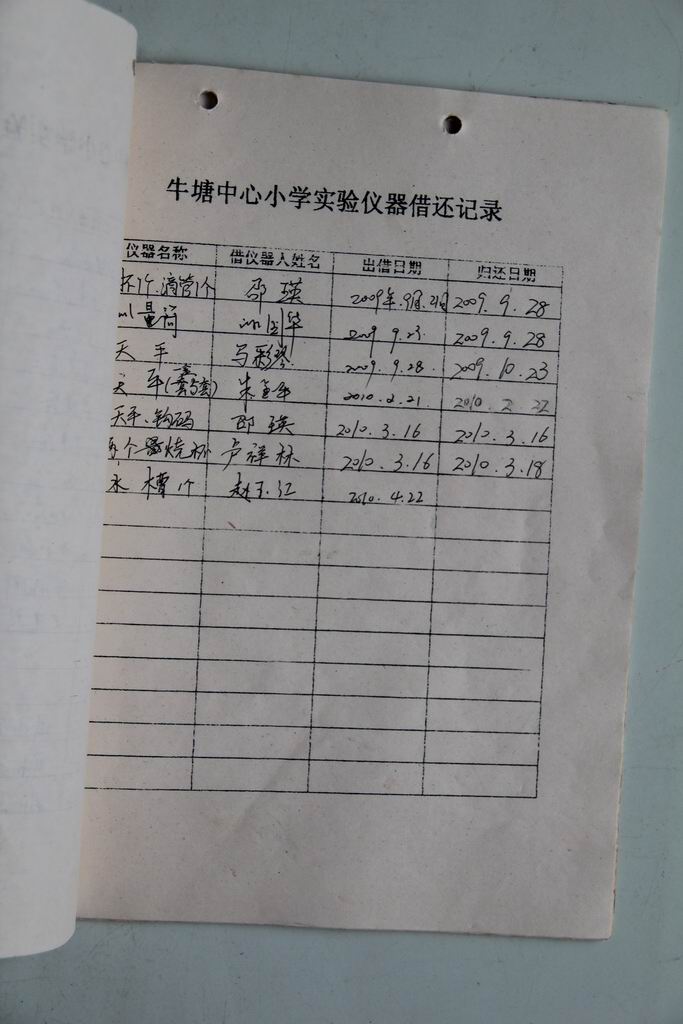 牛塘中心小学实验仪器借还记录
仪器名称 借仪器人姓名 出借日期 归还日期
杯1个.滴管1个 邵瑛 2009年.9月.21日 2009.9.28
ml量筒 华 2009.9.23 2009.9.28
天平 马彩琴 2009.9.28 2009.10.23
天平( 朱 2010.2.21 2010.2.22
天平、钩码 邵瑛 2010.3.16 2010.3.16
个 烧杯 卢祥林 2010.3.16 2010.3.18
水槽1个 赵玉江 2010.4.22